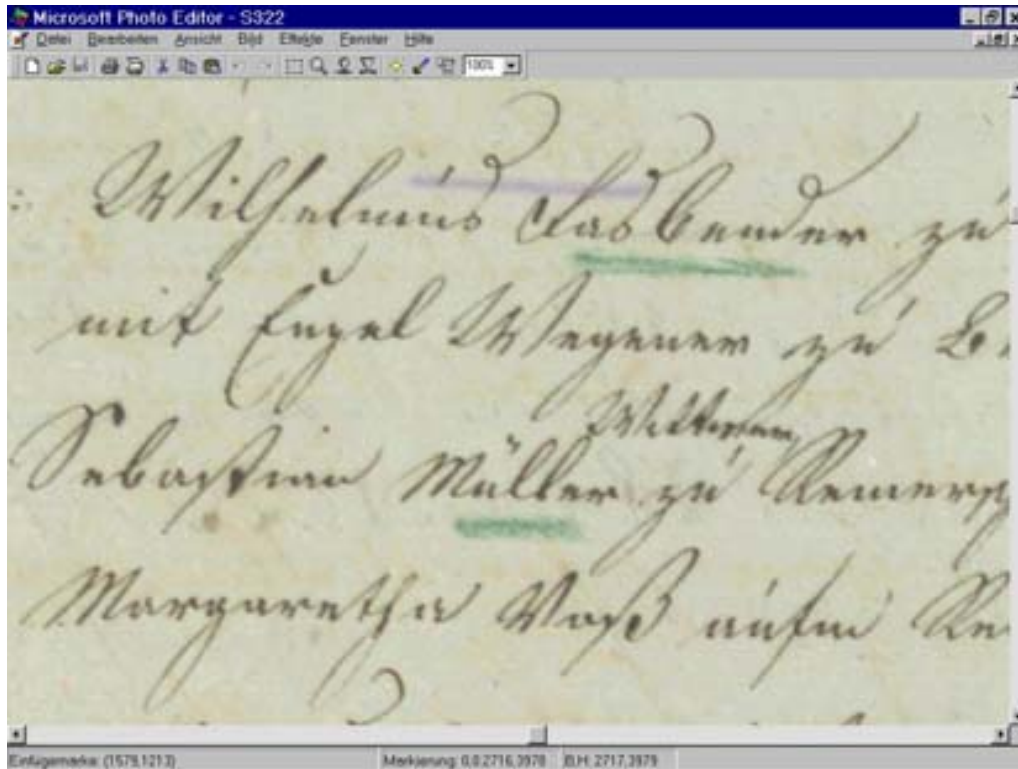 Microsoft Photo Editor - S322
Datei Bearbeiten Ansicht Bild Effekte Fenster Hilfe
100%
Wilhelmus Fasbender zu
mit Engel Wegener zu B
Wittwer
Sebastian Müller zu Remers
Margaretha Voß aufm Re
Einfügemarke: (1579,1213) Markierung: 0,0,2716,3978 B,H: 2717,3979